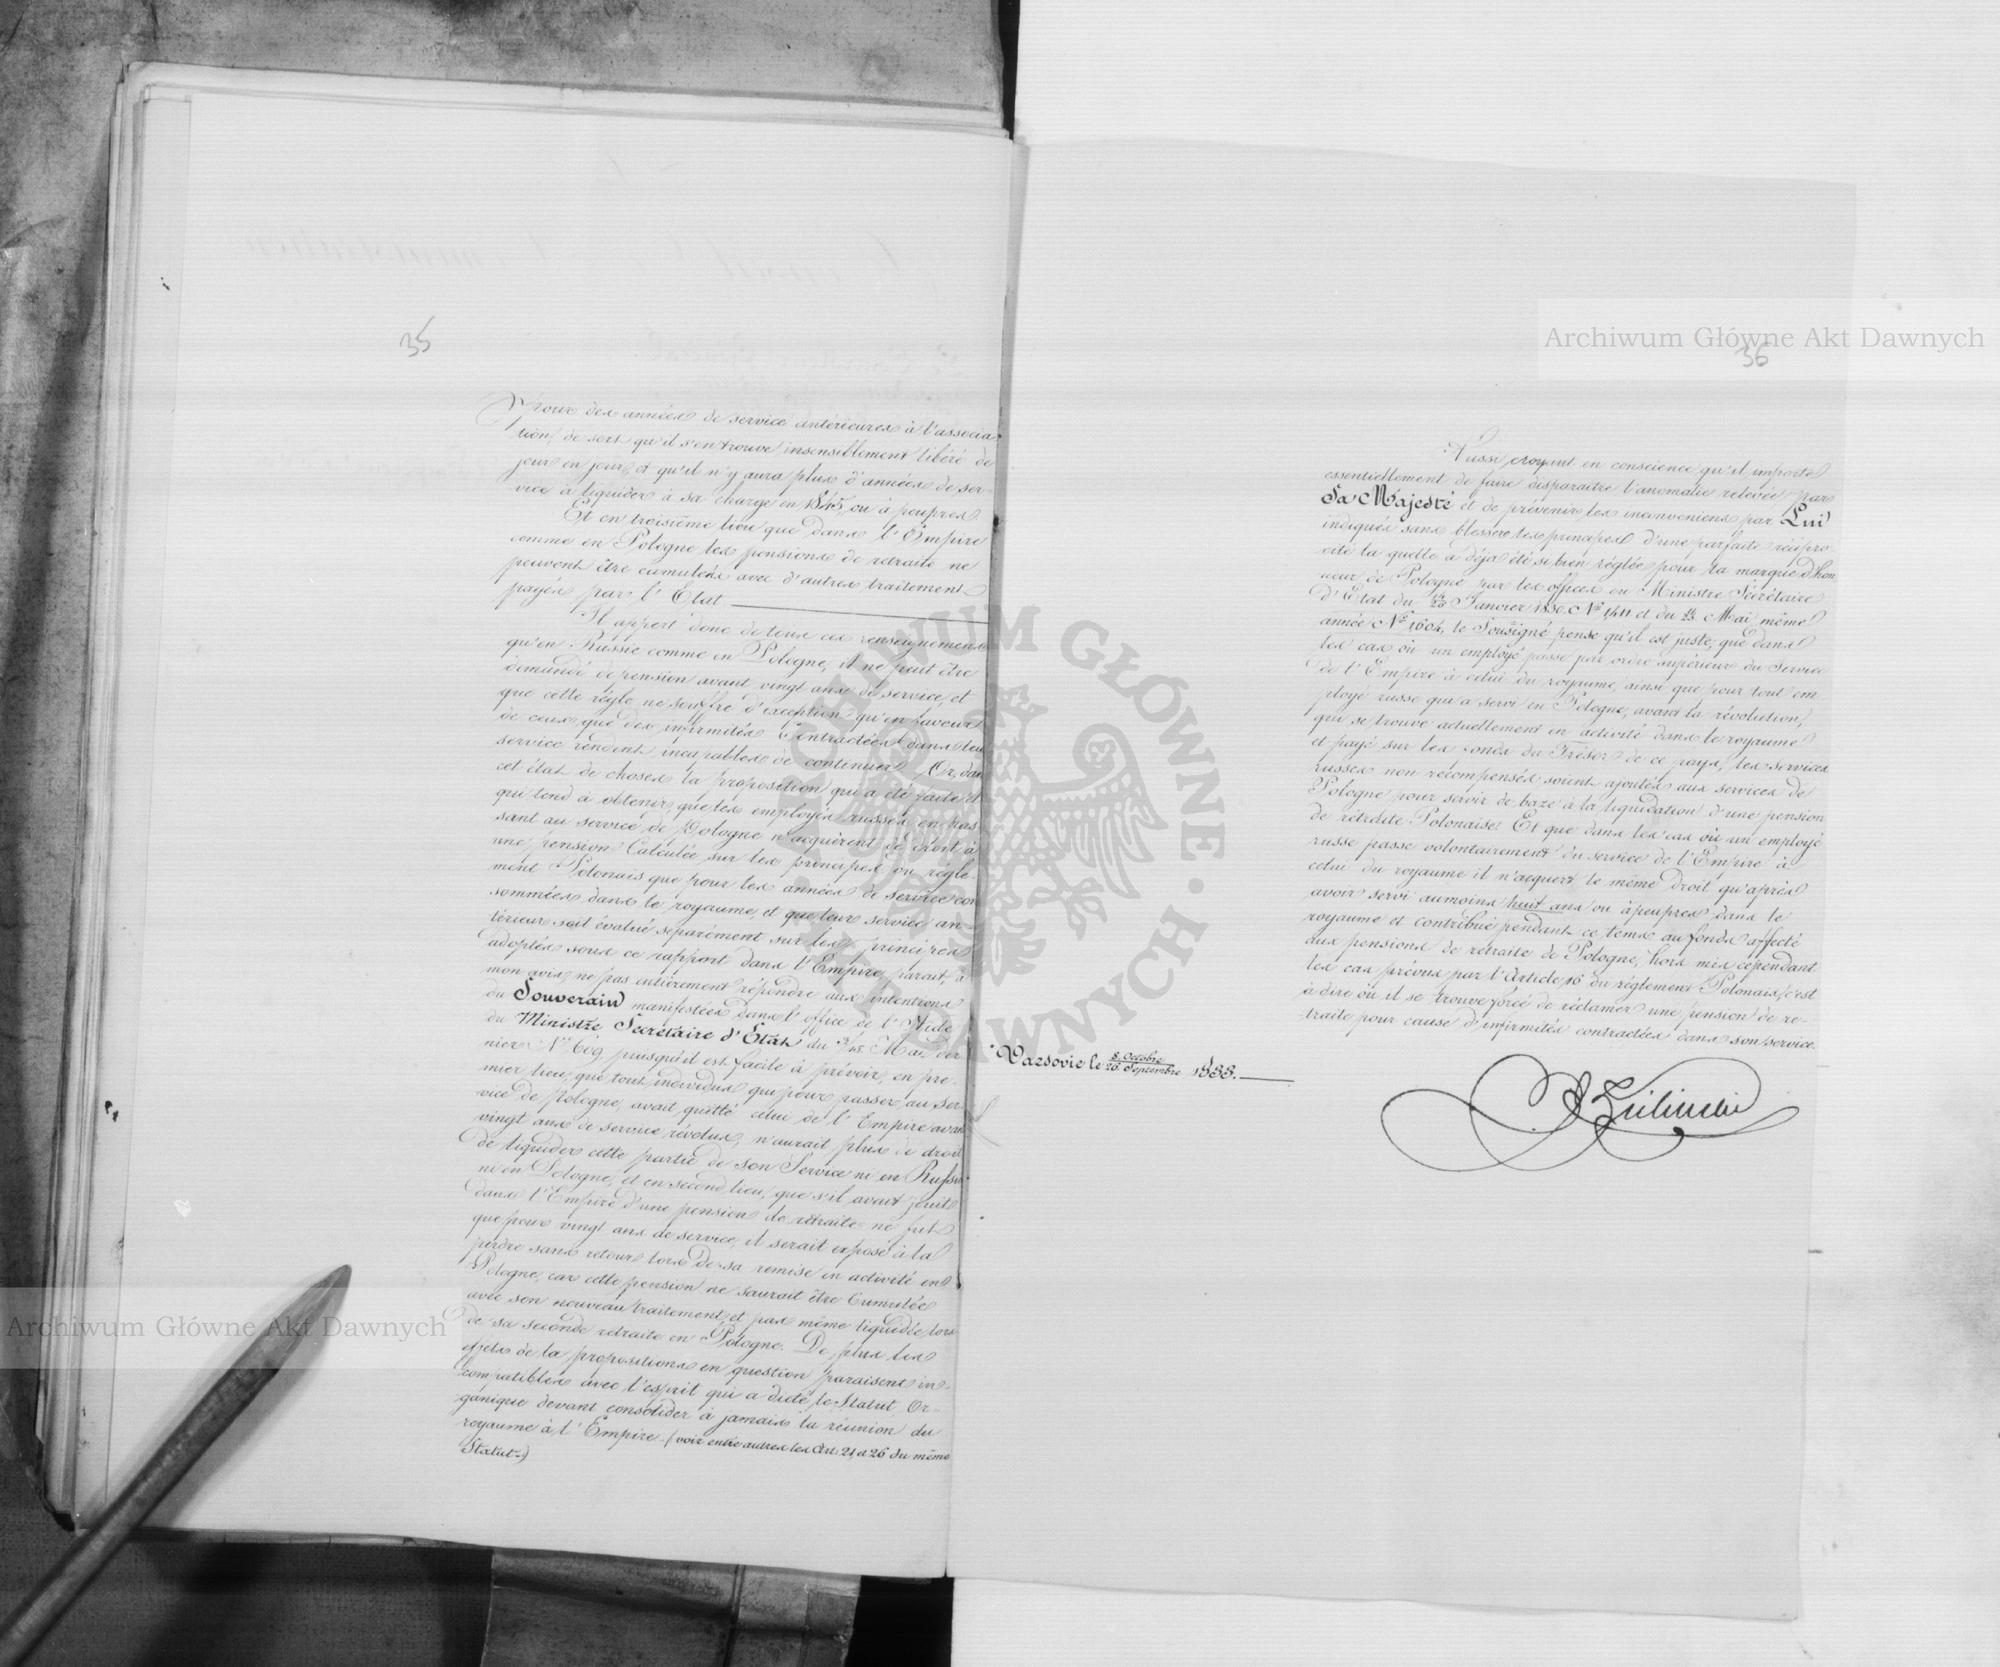 35
pour des années de service antérieures à l'associa-
tion, de sort qu'il s'en trouve insensiblement libéré de
jour en jour, et qu'il n'y aura plus d'années de ser-
vice à liquider à sa charge en 1845, ou à peuprès.
Et en troisième lieu que dans l'Empire
comme en Pologne les pensions de retraite ne
peuvent être cumulées avec d'autres traitement
payés par l'Etat
Il appert donc de tous ces renseignemens
qu'en Russie comme en Pologne, il ne peut être
demandé de pension avant vingt ans de service, et
que cette régle ne souffre d'exception qu'en faveur
de ceux, que des infirmités contractées dans leu
service rendent incapables de continuer. Or, dan
cet état de choses la proposition qui a été faite et
qui tend à obtenir, que les employés russes, en pas
sant au service de Pologne n'acquièrent de droit à
une pension Calculée sur les principes du régle-
ment Polonais que pour les années de service con
sommées dans le royaume, et que leur service an-
térieur soit évalué séparément sur les principes
adoptés sous ce rapport dans l'Empire, parait, à
mon avis, ne pas entièrement répondre aux intentions
du Souverain manifestées dans l'office de l'Aide
du Ministre Secrétaire d'Etat du Mai der
nier Nº 609, puisqu'il est facile à prévoir, en pre-
mier lieu, que tout individu qui pour passer au ser
vice de Pologne, avait quitté celui de l'Empire avan
vingt ans de service révolus, n'aurait plus de droit
de liquider cette partie de son Service ni en Russie
ni en Pologne, et en second lieu, que s'il avait jouit
dans l'Empire d'une pension de retraite ne fut
que pour vingt ans de service, il serait exposé à la
perdre sans retour lors de sa remise en activité en
Pologne, car cette pension ne saurait être Cumulée
avec son nouveau traitement, et pas même liquidée, lors
de sa seconde retraite en Pologne. De plus les
effets de la propositions en question paraisent in-
compatibles avec l'esprit qui a dicté, le Statut Or-
ganique devant consolider à jamais la réunion du
royaume à l'Empire (voir entre autres les Art: 21, et 26 du même
Statut.)
36
Aussi croyant en conscience qu'il importe
essentiellement de faire disparaitre l'anomalie relevée par
Sa Majesté et de prévenir les inconveniens par Lui
indiqués sans blesser les principes d'une parfaite récipro-
cité la quelle a déja été si bien réglée pour la marque d'hon
neur de Pologne par les offices du Ministre Sécrétaire
d'Etat du Janvier 1830. Nº 1,411 et du Mai même
année Nº 1,604, le Sousigné pense qu'il est juste, que dans
les cas où un employé passe par ordre supérieur du Service
de l'Empire à celui du royaume, ainsi que pour tout em
ployé russe qui a servi en Pologne, avant la révolution,
qui se trouve actuellement en activité dans le royaume
et payé sur les fonds du Trésor de ce pays, les services
russes non récompensés soient ajoutés aux services de
Pologne pour servir de baze à la liquidation d'une pension
de rétraite Polonaise. Et que dans les cas où un employé
russe passe volontairement du service de l'Empire à
celui du royaume il n'acquert le même droit qu'après
avoir servi aumoins huit ans ou àpeuprès dans le
royaume et contribué pendant ce tems au fonds affecté
aux pensions de retraite de Pologne, hors mis cependant
les cas prévus par l'Article 16 du réglement Polonais, c'est
à dire où il se trouve forcé de réclamer une pension de re-
traite pour cause d'infirmités contractées dans son service.
Varsovie le 8. Octobre
26. Septembre 1833.
Archiwum Główne Akt Dawnych
Archiwum Główne Akt Dawnych
ARCHIWUM GŁÓWNE AKT DAWNYCH